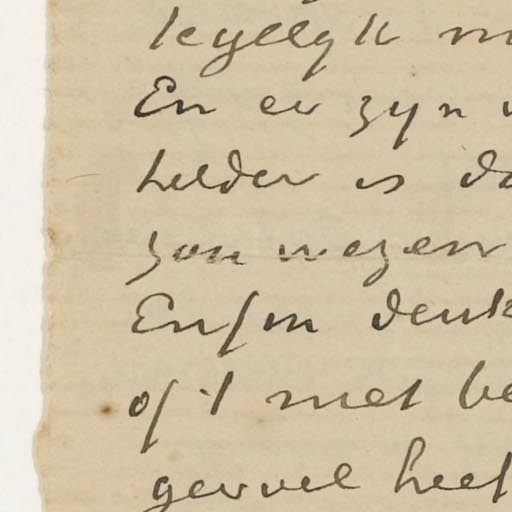 leyelyk m
En er zyn
helder is da
zou wezen
Enfin denk
of 't met be
gevoel heef